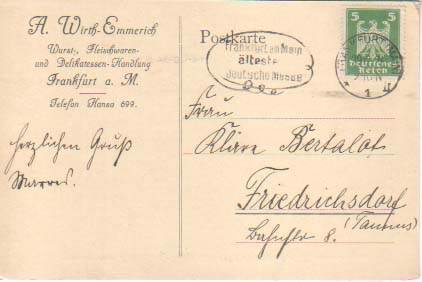 A. Wirth-Emmerich
Wurst-, Fleischwaren-
und Delikatessen-Handlung
Frankfurt a. M.
Telefon Hansa 699.
herzlichen Gruß
Postkarte
Frankfurt am Main
älteste
deutsche Messe
5 5
Deutsches
Reich
FRANKFURT
1
Frau
Kläre Bertalot
Friedrichsdorf
(Taunus)
8.